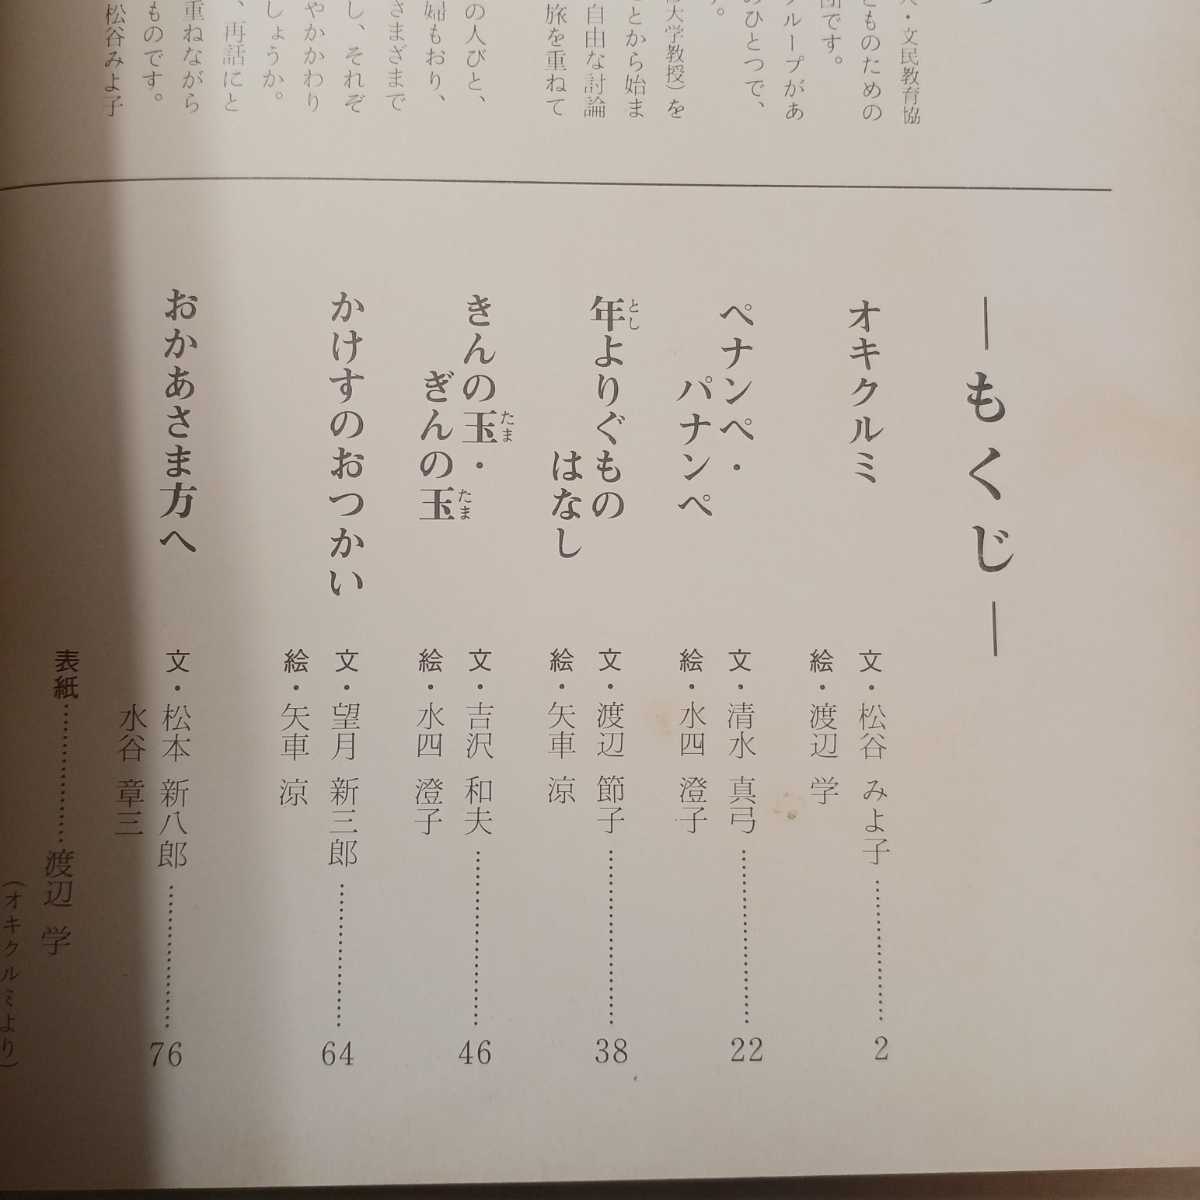 人・文民教育協
どものための
団です。
グループがあ
のひとつで、
す。
大学教授）を
ことから始ま
自由な討論
旅を重ねて
の人びと、
婦もおり、
さまざまで
し、それぞ
やかかわり
しょうか。
、再話にと
重ねながら
ものです。
松谷みよ子
―もくじ―
オキクルミ
文・松谷 みよ子……………2
絵・渡辺 学
ペナンペ・
パナンペ
文・清水 真弓……………22
絵・水四 澄子
年よりぐもの
とし
はなし
文・渡辺 節子……………38
絵・矢車 涼
きんの玉・
たま
ぎんの玉
たま
文・吉沢 和夫……………46
絵・水四 澄子
かけすのおつかい
文・望月 新三郎……………64
絵・矢車 涼
おかあさま方へ
文・松本 新八郎……………76
水谷 章三
表紙……………渡辺 学
（オキクルミより）